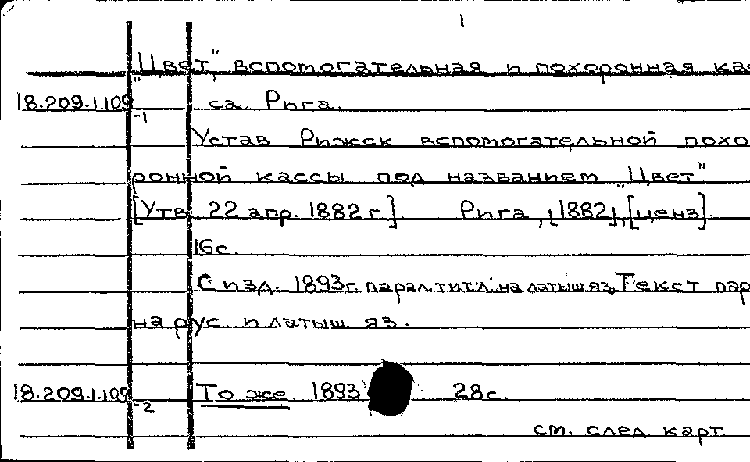 1
„Цвет", вспомогательная и похоронная кас
18.209.1.109-1 са. Рига.
Устав Рижск вспомогательной похо
ронной кассы под названием „Цвет"
[Утв. 22 апр. 1882 г.] Рига, [1882], [ценз].
16с.
С изд. 1893г. парал. титл. на латыш яз. Текст пар
на рус. и латыш яз.
18.209.1.109-2 То же 1893 28с.
см. след. карт.